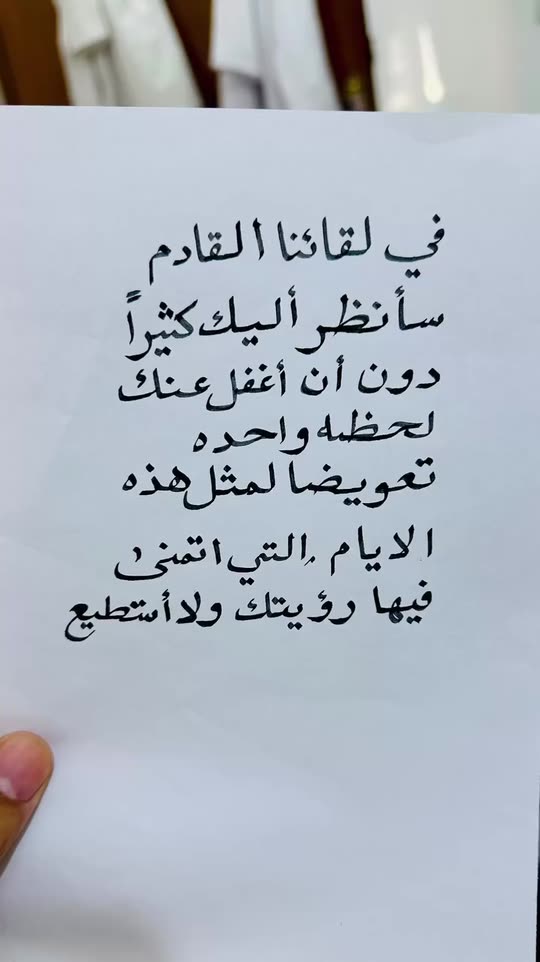 في لقائنا القادم
سأنظر أليك كثيراً
دون أن أغفل عنك
لحظه واحده
تعويضا لمثل هذه
الايام التي اتمنى
فيها رؤيتك ولا أستطيع